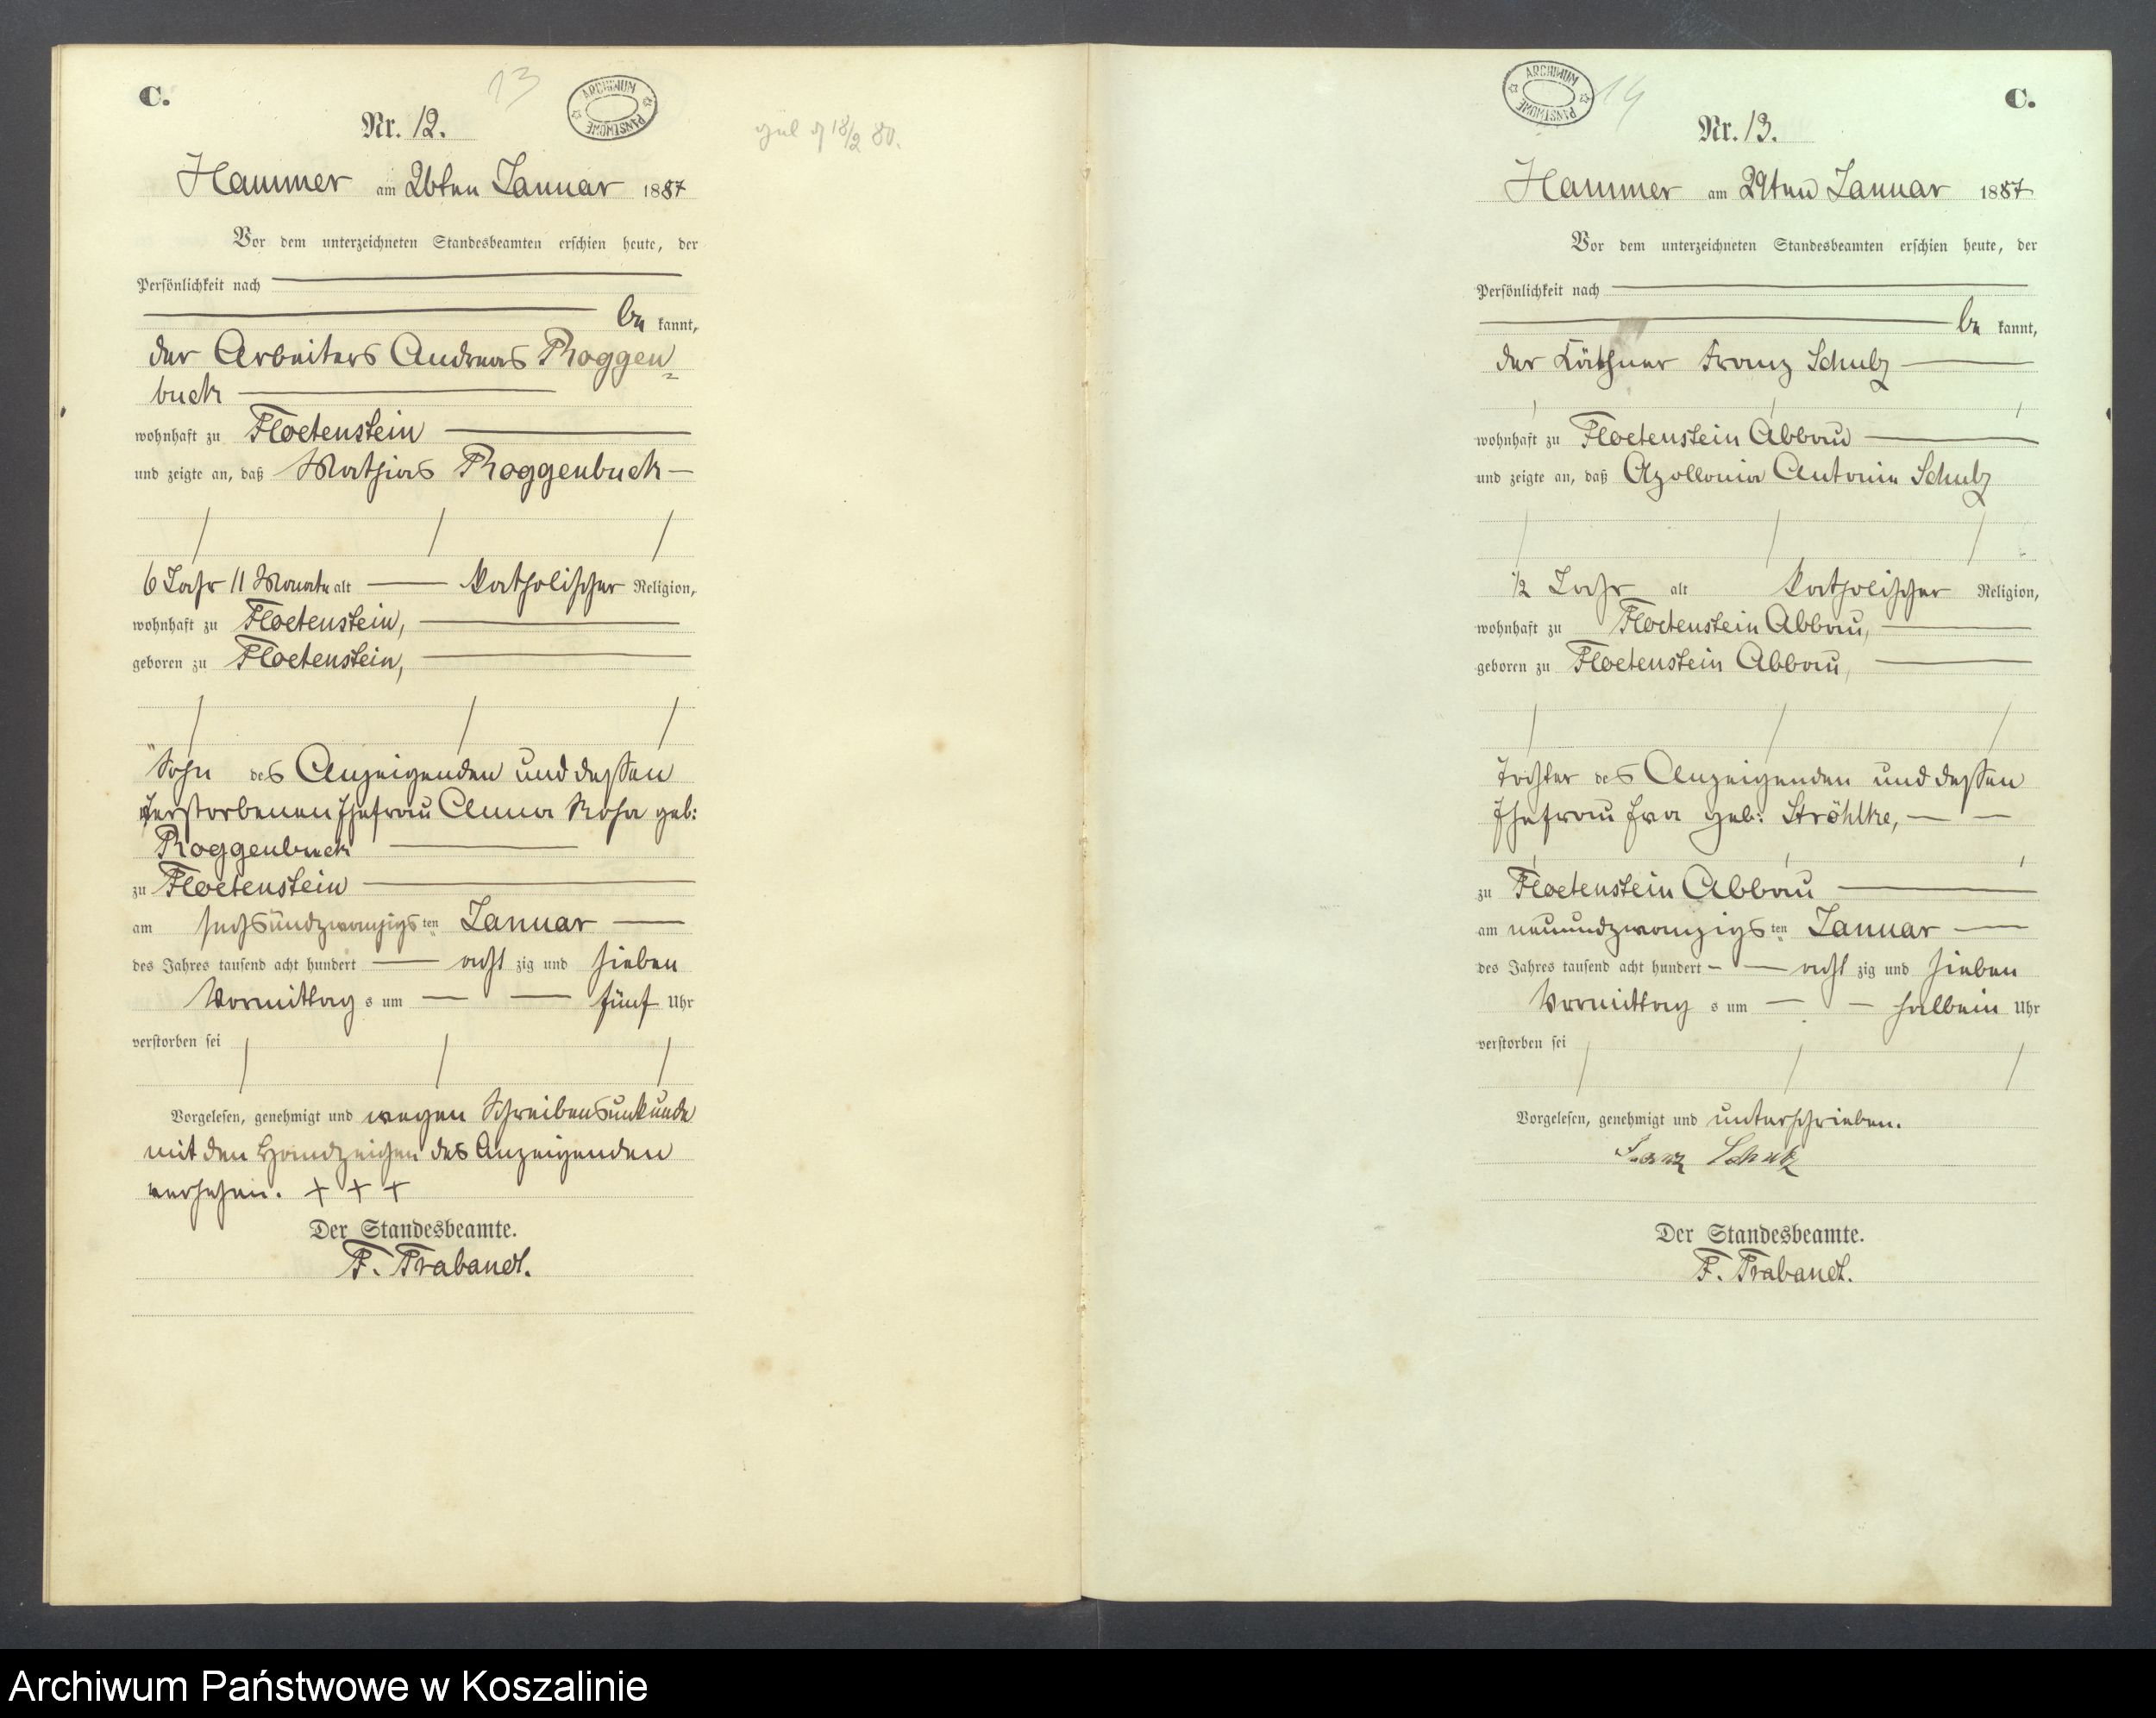 C.
13
ARCHIWUM PAŃSTWOWE
Nr. 12.
Hammer am 26ten Januar 1887
Vor dem unterzeichneten Standesbeamten erschien heute, der
Persönlichkeit nach
be kannt,
der Arbeiters Andreas Roggen=
buck
wohnhaft zu Floetenstein
und zeigte an, daß Mathias Roggenbuck
6 Jahr 11 Monate alt katholischer Religion,
wohnhaft zu Floetenstein,
geboren zu Floetenstein,
Sohn des Anzeigenden und dessen
verstorbenen Ehefrau Anna Rosa geb:
Roggenbuck
zu Floetenstein
am sechsundzwanzigs ten Januar
des Jahres tausend acht hundert acht zig und sieben
Vormittag s um fünf Uhr
verstorben sei
Vorgelesen, genehmigt und wegen Schreibensunkunde
mit den Handzeichen des Anzeigenden
versehen. + + +
Der Standesbeamte.
F. Trabandt.
18/2 80.
ARCHIWUM PAŃSTWOWE
14
C.
Nr. 13.
Hammer am 29ten Januar 1887
Vor dem unterzeichneten Standesbeamten erschien heute, der
Persönlichkeit nach
be kannt,
der Käthner Franz Schulz
wohnhaft zu Floetenstein Abbau
und zeigte an, daß Apollonia Antonie Schulz
1/2 Jahr alt katholischer Religion,
wohnhaft zu Floetenstein Abbau,
geboren zu Floetenstein Abbau,
Tochter des Anzeigenden und dessen
Ehefrau Eva geb: Ströhlke,
zu Floetenstein Abbau
am neunundzwanzigs ten Januar
des Jahres tausend acht hundert acht zig und sieben
Vormittag s um halbein Uhr
verstorben sei
Vorgelesen, genehmigt und unterschrieben.
Franz Schulz
Der Standesbeamte.
F. Trabandt.
Archiwum Państwowe w Koszalinie